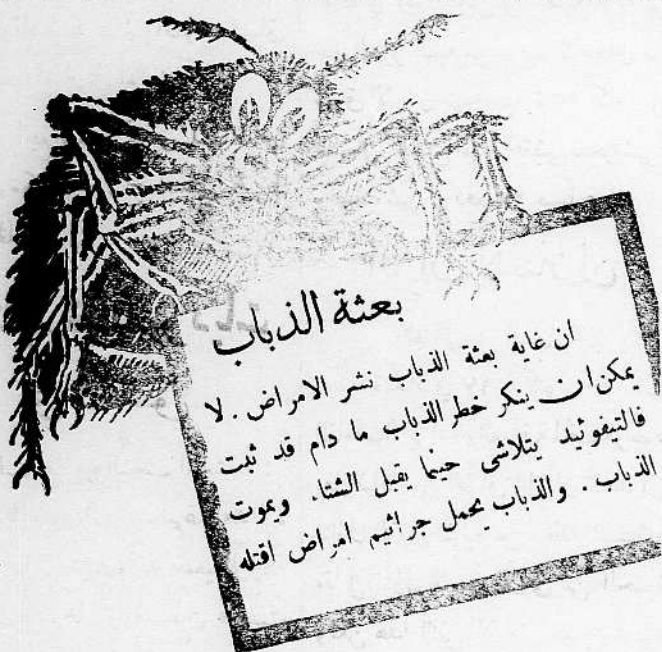 بعثة الذباب
ان غاية بعثة الذباب نشر الامراض . لا
يمكن ان ينكر خطر الذباب ما دام قد ثبت
فالتيفوئيد يتلاشى حينما يقبل الشتا. ويموت
الذباب . والذباب يحمل جراثيم امراض اقتله